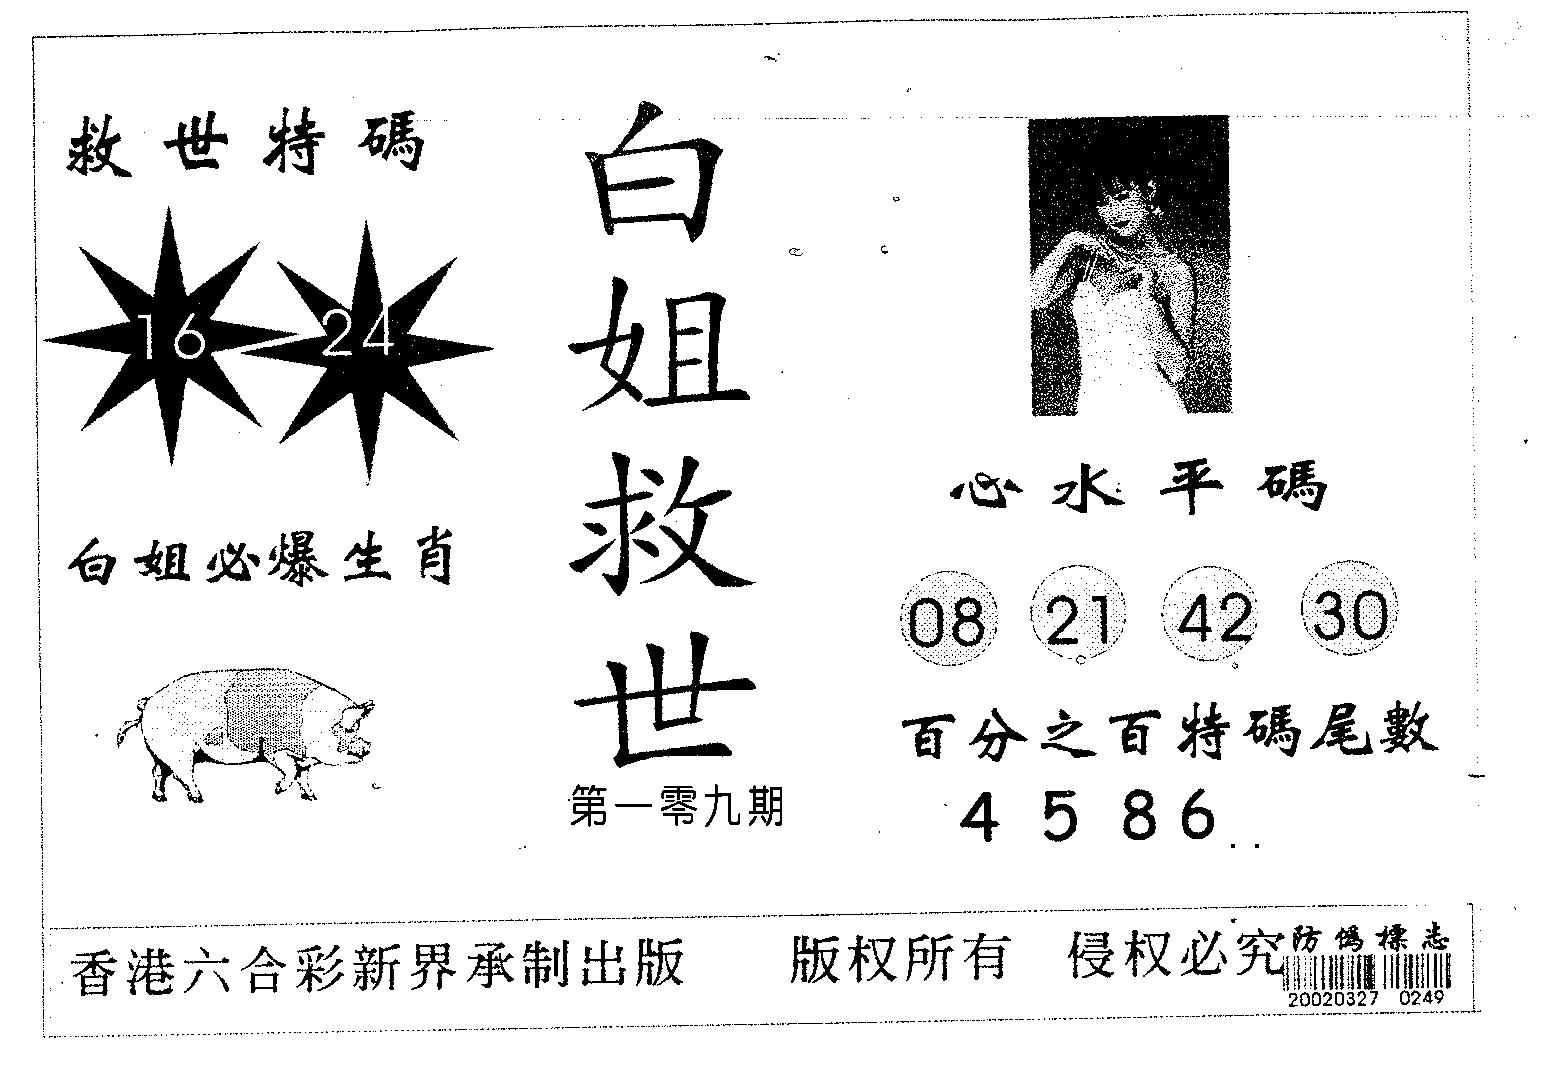 救世特碼
16 24
白姐必爆生肖
白姐救世
第一零九期
心水平碼
08 21 42 30
百分之百特碼尾數
4 5 8 6..
香港六合彩新界承制出版 版权所有 侵权必究
防僞標志
20020327 0249